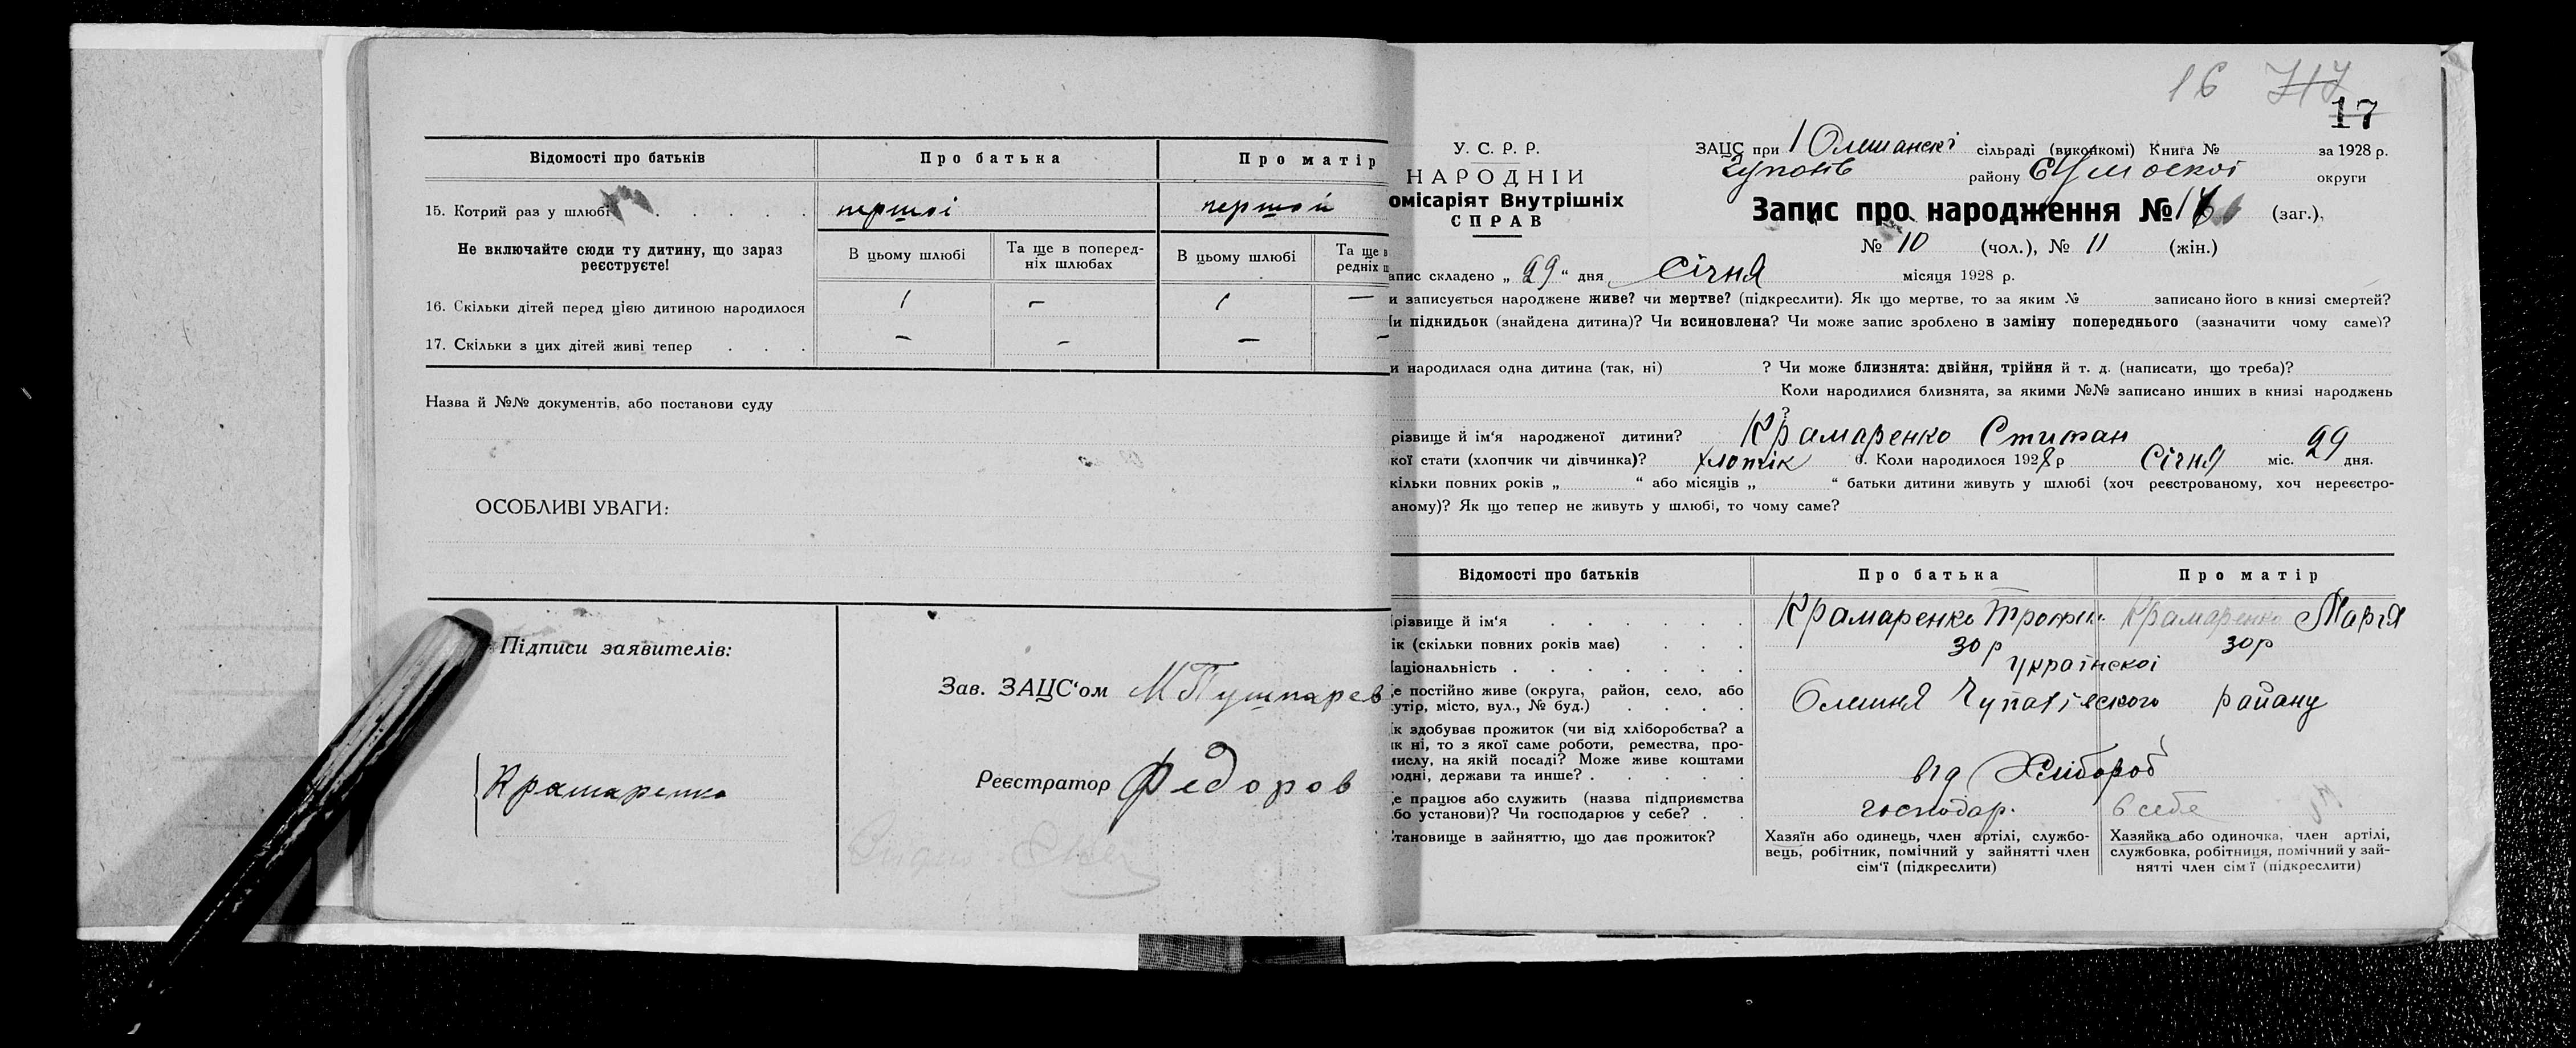 Відомості про батьків
Про батька
Про матір
15. Котрий раз у шлюбі
першоі
першой
Не включайте сюди ту дитину, що зараз
реєструєте!
В цьому шлюбі
Та ще в поперед-
ніх шлюбах
В цьому шлюбі
Та ще в
редніх
16. Скільки дітей перед цією дитиною народилося
1
–
1
–
17. Скільки з цих дітей живі тепер
–
–
–
–
Назва й №№ документів, або постанови суду
ОСОБЛИВІ УВАГИ:
Підписи заявителів:
Крамаренко
Зав. ЗАЦС'ом
Реєстратор Федоров
16
17
У. С. Р. Р.
НАРОДНІЙ
омісаріят Внутрішніх
СПРАВ
ЗАЦС при 1 Олешанскі сільраді (виконкомі) Книга № за 1928 р.
району Сумскоі округи
Запис про народження № (заг.),
№ 10 (чол.), № 11 (жін.)
апис складено „ 29 “ дня Січня місяця 1928 р.
и записується народжене живе? чи мертве? (підкреслити). Як що мертве, то за яким № записано його в книзі смертей?
и підкидьок (знайдена дитина)? Чи всиновлена? Чи може запис зроблено в заміну попереднього (зазначити чому саме)?
и народилася одна дитина (так, ні) ? Чи може близнята: двійня, трійня й т. д. (написати, що треба)?
Коли народилися близнята, за якими №№ записано инших в книзі народжень
?
різвище й ім'я народженої дитини? Крамаренко Стипан
кої стати (хлопчик чи дівчинка)? хлопчік 6. Коли народилося 1928 р Січня міс. 29 дня.
кільки повних років „ “ або місяців „ “ батьки дитини живуть у шлюбі (хоч реєстрованому, хоч нереєстро-
аному)? Як що тепер не живуть у шлюбі, то чому саме?
Відомості про батьків
Про батька
Про матір
різвище й ім'я
Крамаренко Трохим
Крамаренко Марія
ік (скільки повних років має)
30 р
30 р
аціональність
Українскоі
е постійно живе (округа, район, село, або
утір, місто, вул., № буд.)
Олешня Чупахівского району
к здобуває прожиток (чи від хліборобства? а
к ні, то з якої саме роботи, ремества, про-
ислу, на якій посаді? Може живе коштами
одні, держави та инше?
від Хлібороб
е працює або служить (назва підприємства
бо установи)? Чи господарює у себе?
господар.
в себе
тановище в зайняттю, що дає прожиток?
Хазяїн або одинець, член артілі, службо-
вець, робітник, помічний у зайнятті член
сім'ї (підкреслити)
Хазяйка або одиночка, член артілі,
службовка, робітниця, помічний у зай-
нятті член сім'ї (підкреслити)